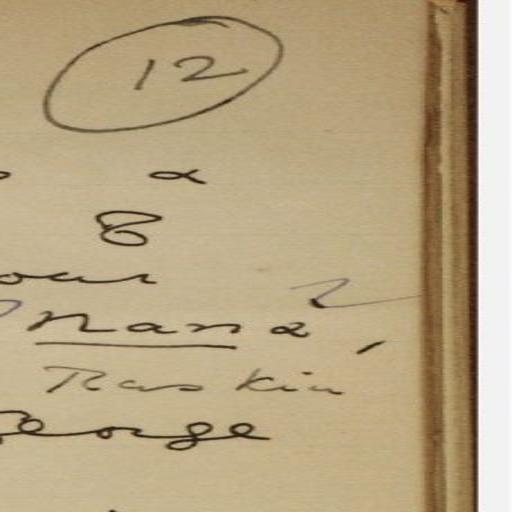 12
a
8
our
nana,
Raskin
George